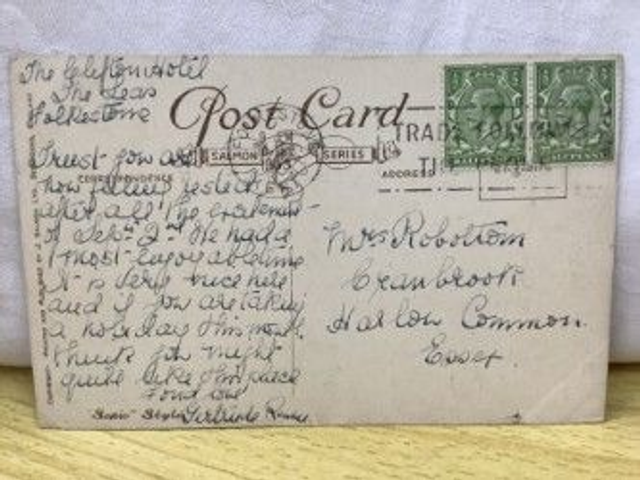 The Clifton Hotel
The Leas
Folkestone
Post Card
SALMON SERIES
CORRESPONDENCE
ADDRESS
Trust you are
now feeling rested
after all the excitement
of Sept 2nd We had a
most enjoyable time
It is very nice here
and if you are taking
a holiday this month
think you might
quite like this place
Fond love
Gertrude
"Sepio" Style
TRADE FOLLOWS
THE PHONE
Mrs Robottom
Cranbrook
Harlow Common
Essex.